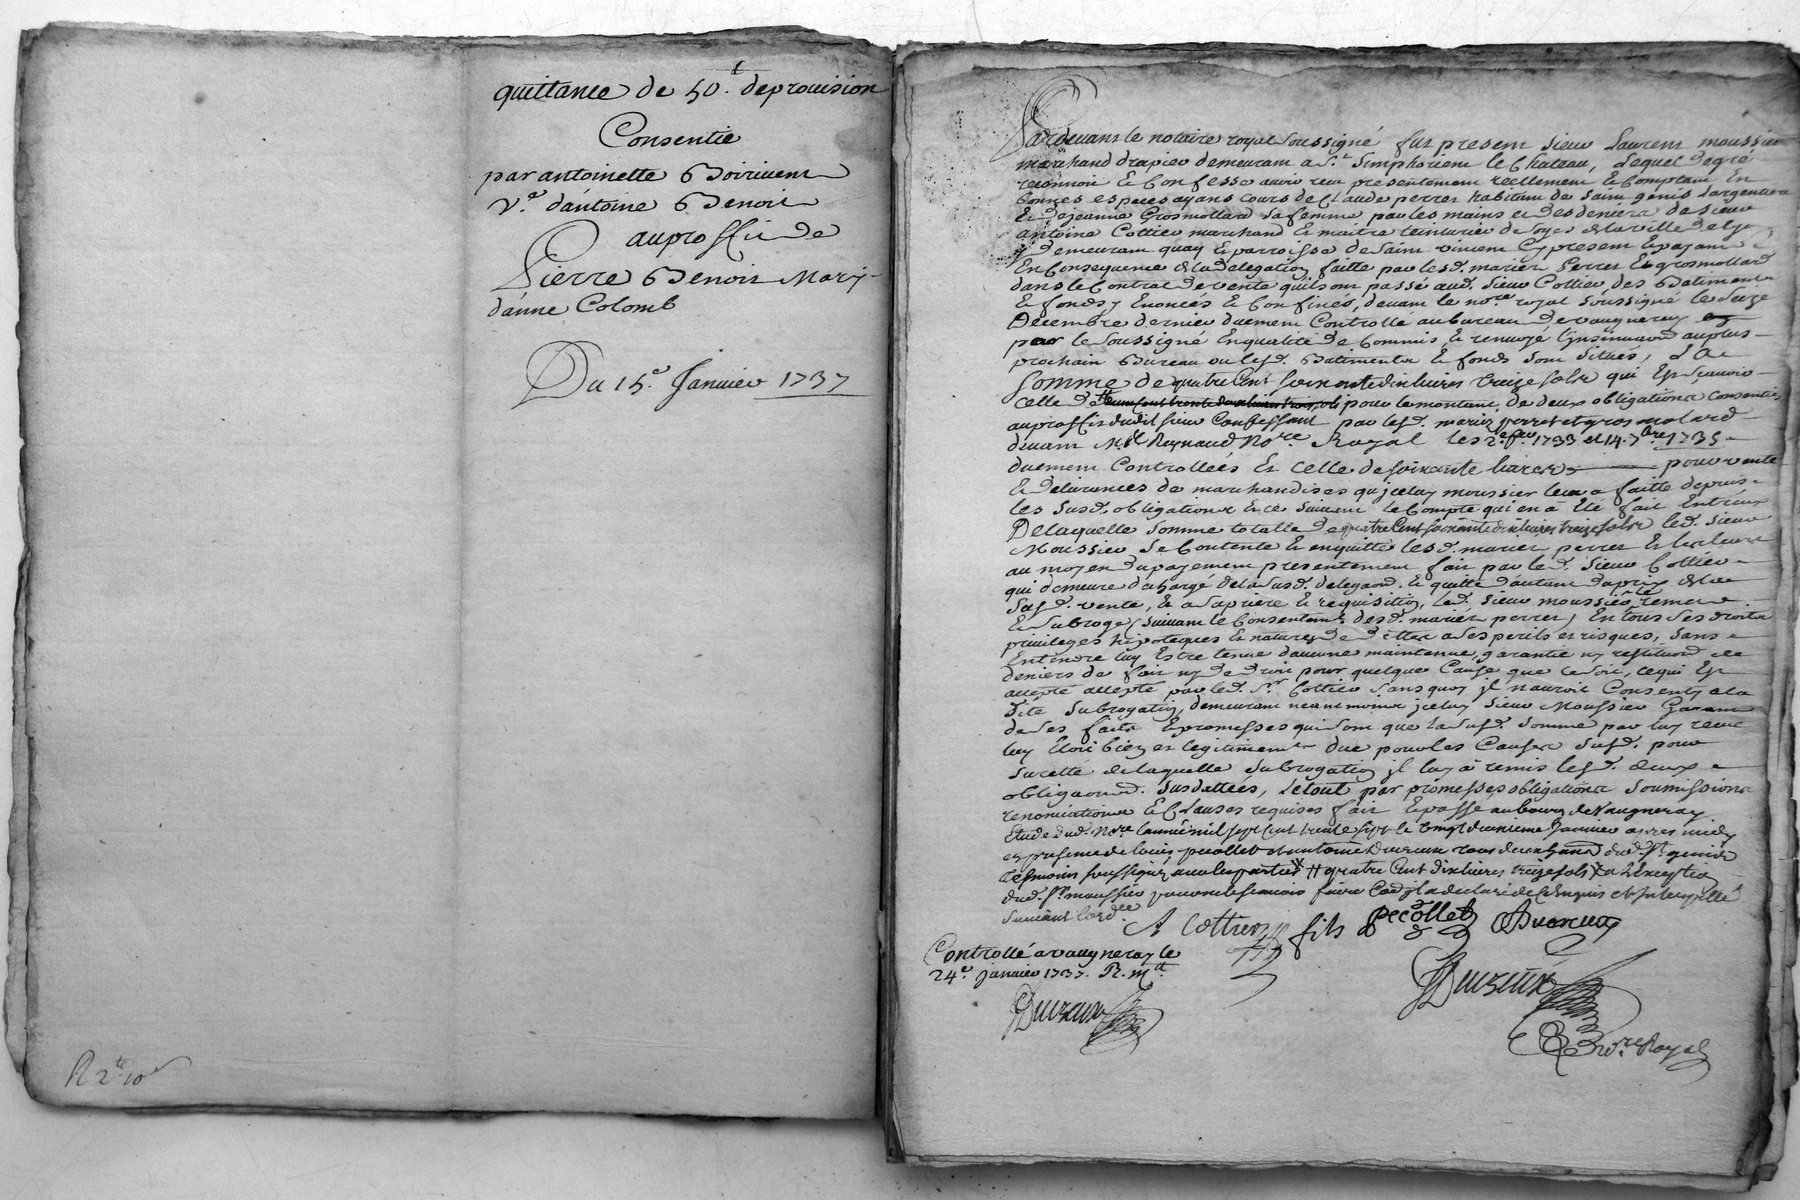 quittance de 50.ᵗ deprouision
Consentie
par antoinette Boiriuent
V.ᵉ d'antoine Benoit
auproffit de
Pierre Benoit Mary
d'anne Colomb
Du 15.ᵉ Januier 1737
R 2ᵗᵗ 10ˢ
Pardeuant le notaire royal soussigné fut present sieur Laurent moussier
marchand drapier demeurant a S.ᵗ Simphorien le Chateau, Lequel de gré
reconnoit et Confesse auoir reçu presentement reellement et Comptant En
bonnes especes ayans cours de Claude perret habitant de Saint genis Largentiere
Et de jeanne Grosmollard sa femme par les mains et des deniers de sieur
antoine Cottier marchand et maitre teinturier de soyes de la ville de Lyon
y demeurant quay et parroisse de Saint vincent Cy present et payant
En Consequence de la delegation faitte par lesd. mariés Perret et grosmollard
dans le Contrat de vente quils ont passé aud. sieur Cottier des Batiments
et fonds y Enoncés et Confinés, deuant le no.ʳᵉ royal soussigné le seize
Decembre dernier duement Controllé au bureau de vaugneray
par le soussigné En qualité de Commis et renuoyé L'insinuaon au plus
prochain Bureau ou lesd. Batiments et fonds sont situés, De La
Somme de quatre Cent soixante dix liures treize sols qui Est Scauoir
celle de # pour le montant de deux obligations consenties
au proffit dudit sieur Confessant par lesd. mariés perret et grosmolard
deuant M.ᵉ Reynaud No.ʳᵉ Royal les 2.ᵉ feu. 1733 et 14. 7bre 1735
duement Controllées Et celle de soixante liures pour vente
et deliurances de marchandises qu'jceluy moussier leur a faitte depuis
les susd. obligations Et ce suiuant le Compte qui en a Eté fait Entreux
De laquelle somme totalle de quatre Cent soixante dix liures treize sols led. sieur
Moussier se Contente et en quitte lesd. mariés perret et
au moyen du payement presentement fait par led. sieur Cottier
qui demeure dechargé de la susd. delegaon. et quitte d'autant du prix de la
susd. vente, Et a la priere et requisition, led. sieur moussier le remet
et subroge, suiuant le Consentemᵗ desd. mariés perret, En tous ses droits
priuileges hipoteques et nature de dettes a ses perils et risques, sans
Entendre luy Estre tenu d'aucune maintenue, garantie ny restitution de
deniers de fait ny de droit pour quelque Cause que ce soit, ce qui Est
accepté par led. S.ʳ Cottier sans quoy jl n'auroit Consenty a la
dite subrogation, demeurant neantmoins jceluy sieur Moussier Garant
de ses faits Et promesses qui sont que la susd. somme par luy reçue
luy Etoit bien et legitimemᵗ due pour les Causes susd. pour
sureté de laquelle subrogation jl luy a remis lesd. deux
obligaons. susdattées, Le tout par promesses, obligations soumissions
renonciations et Clauses requises fait Et passé au bourg de Vaugneray
Etude dud. No.ʳᵉ l'année mil sept cent trente sept le vingt deuxieme Januier apres midy
en presence de louis pecollet et antoine Durieux
temoins soussignez auec les parties # quatre Cent dix liures treize sols a L'exception
dud. Sʳ moussier pour ne le scauoir faire Ce qu'jl a declaré de Ce Enquis et Interpellé
suiuant L'ord.ᶜᵉ
A Cottier fils Pecollet ADurieux
Controllé a vaugneray le
24.ᵉ Januier 1737. R. m.ᵗ
Durieux
Durieux
No.ʳᵉ Royal